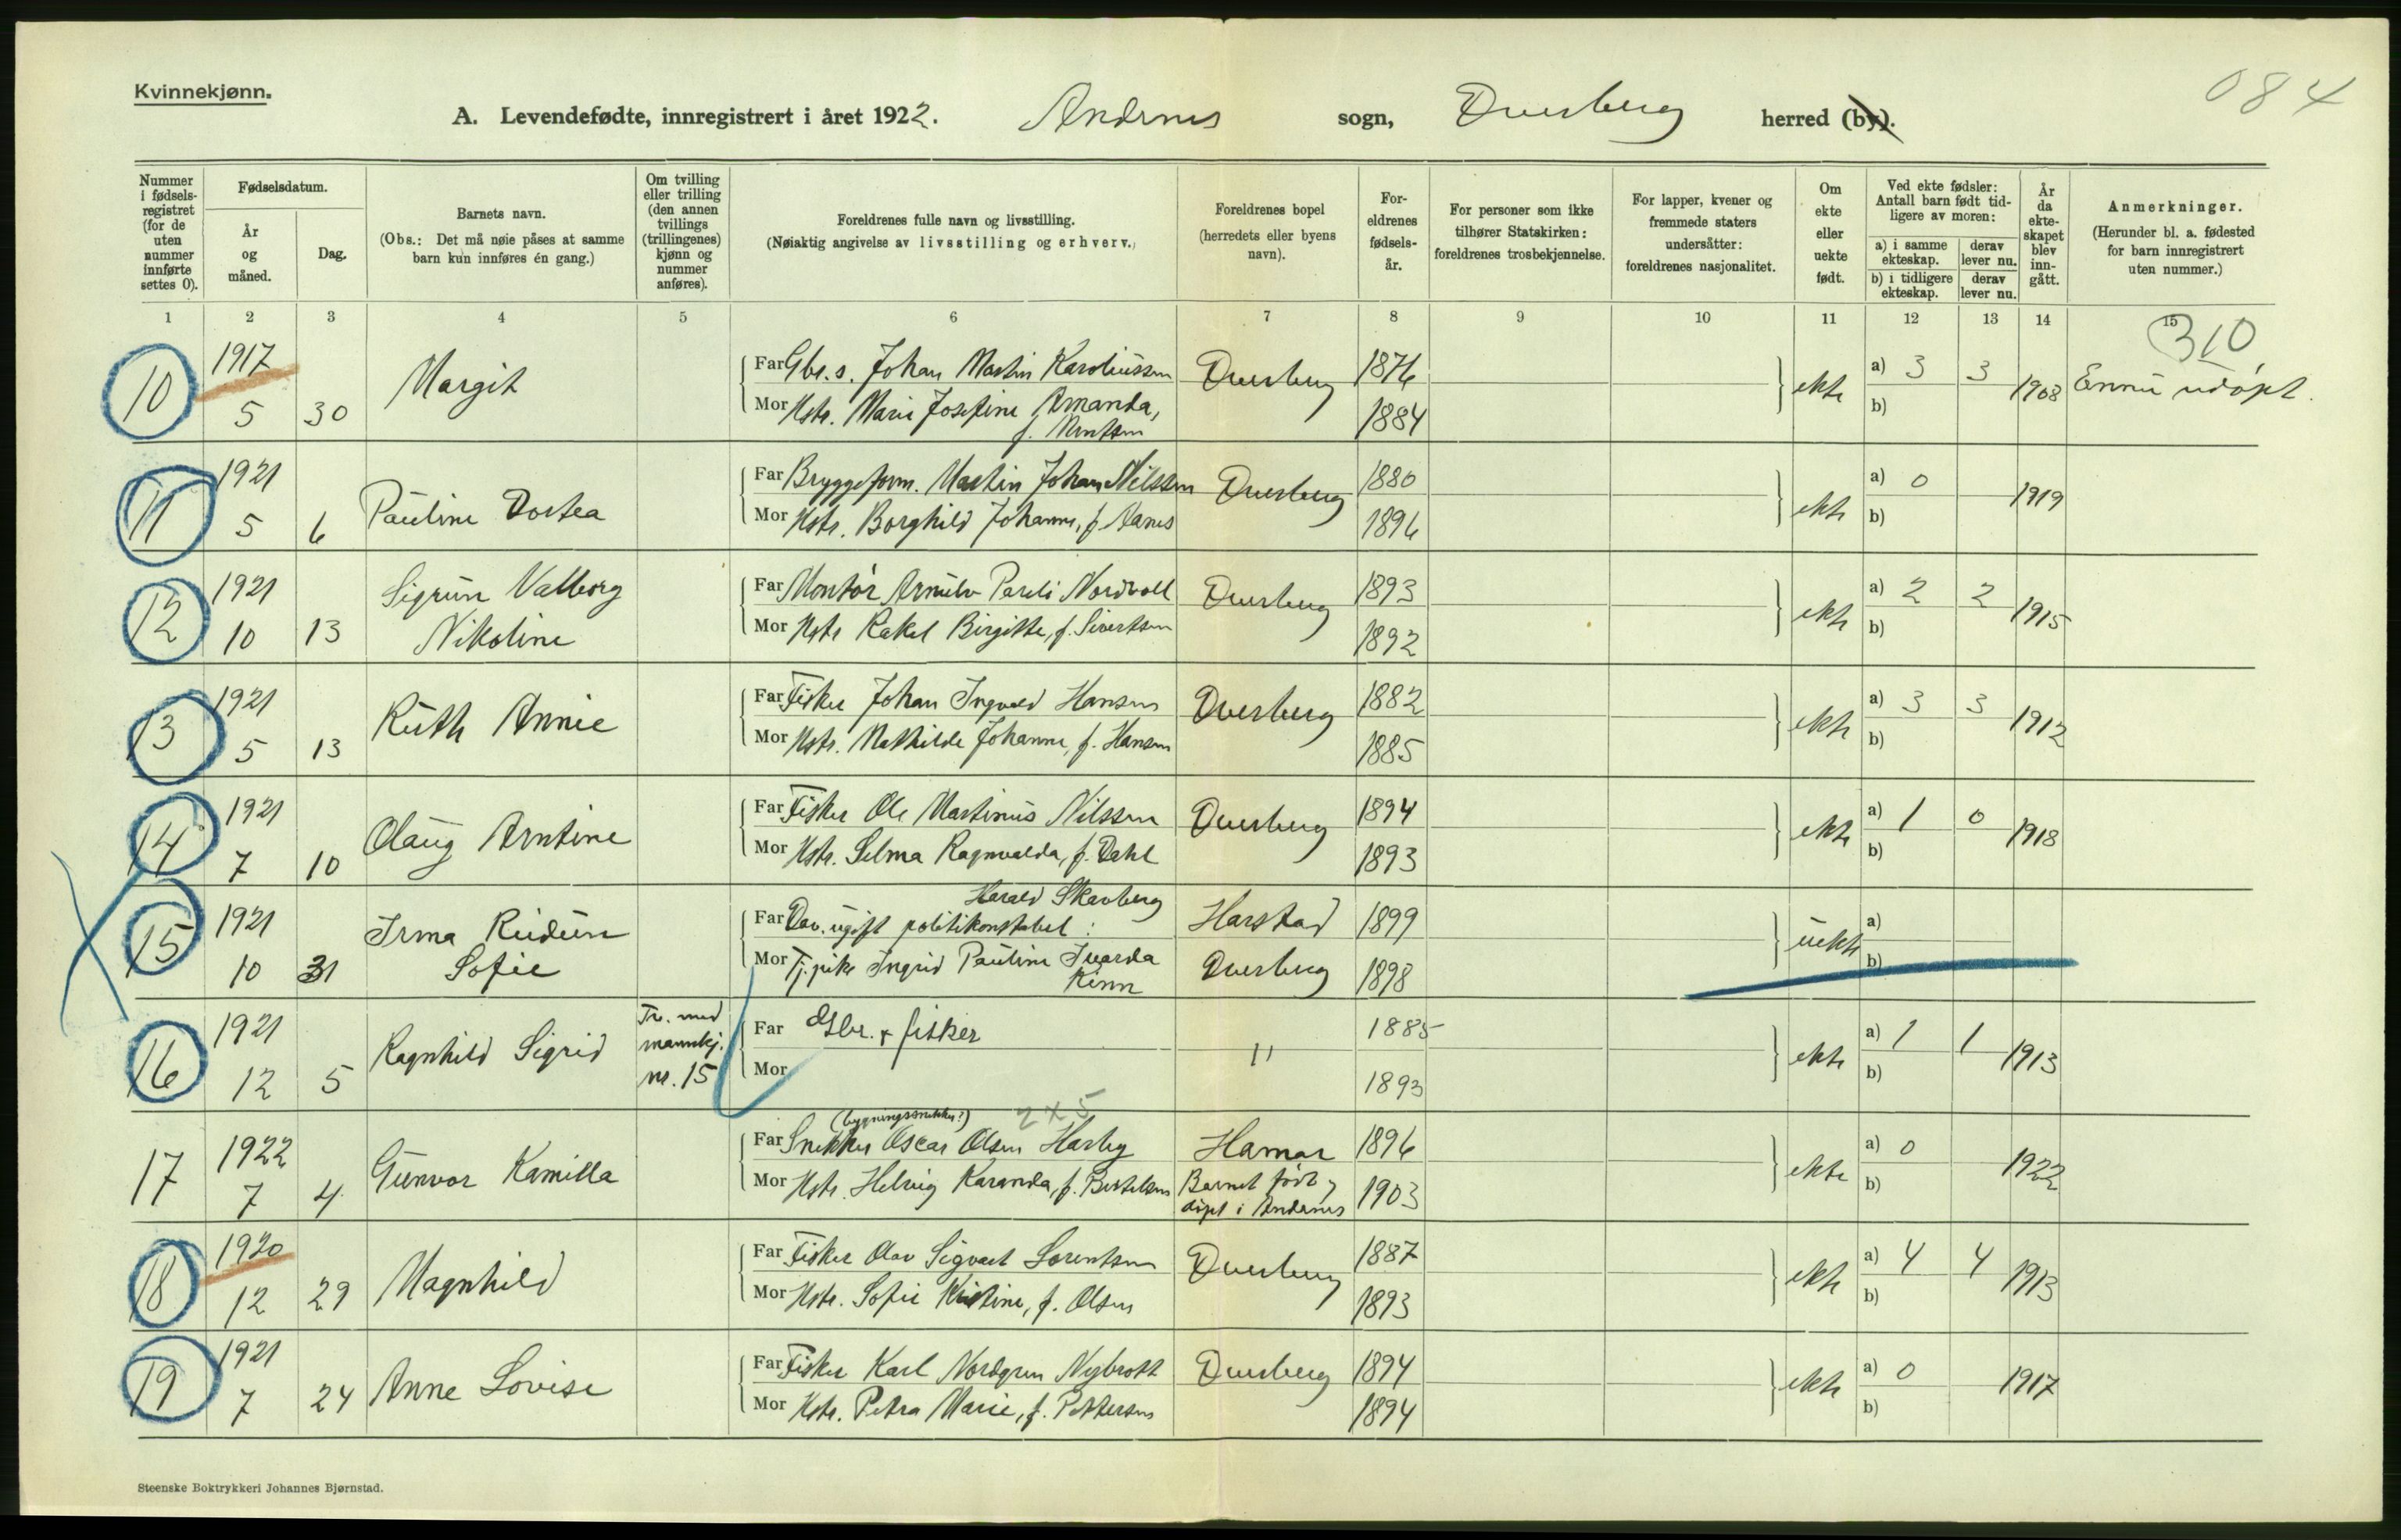 Kvinnekjønn.
084
A. Levendefødte, innregistrert i året 1922. Andenes sogn, Dverberg herred (by).
Nummer i fødsels-registret (for de uten nummer innførte settes 0).
Fødselsdatum.
År og måned.
Dag.
Barnets navn.
(Obs.: Det må nøie påses at samme barn kun innføres én gang.)
Om tvilling eller trilling (den annen tvillings (trillingenes) kjønn og nummer anføres).
Foreldrenes fulle navn og livsstilling.
(Nøiaktig angivelse av livsstilling og erhverv.)
Foreldrenes bopel (herredets eller byens navn).
For-eldrenes fødsels-år.
For personer som ikke tilhører Statskirken: foreldrenes trosbekjennelse.
For lapper, kvener og fremmede staters undersåtter: foreldrenes nasjonalitet.
Om ekte eller uekte født.
Ved ekte fødsler: Antall barn født tid-ligere av moren:
a) i samme ekteskap.
derav lever nu.
b) i tidligere ekteskap.
derav lever nu.
År da ekte-skapet blev inn-gått.
Anmerkninger.
(Herunder bl. a. fødested for barn innregistrert uten nummer.)
1 2 3 4 5 6 7 8 9 10 11 12 13 14 15
310
10 1917 5 30 Margit
Far Gbr. s. Johan Martin Karoliussen Dverberg 1876
Mor Hstr. Marie Josefine Amanda, f. 1884
ekte a) 3 3 b) 1908 Ennu udøpt.
11 1921 5 6 Pauline Dortea
Far Bryggeform. Martin Johan Nilssen Dverberg 1880
Mor Hstr. Borghild Johanne, f. Aanes 1896
ekte a) 0 b) 1919
12 1921 10 13 Sigrun Valborg Nikoline
Far Montør Arnulv Pareli Nordvoll Dverberg 1893
Mor Hstr Rakel Birgitte, f. Sivertsen 1892
ekte a) 2 2 b) 1915
13 1921 5 13 Ruth Annie
Far Fisker Johan Ingvald Hansen Dverberg 1882
Mor Hstr. Mathilde Johanne, f. Hansen 1885
ekte a) 3 3 b) 1912
14 1921 7 10 Olaug Arntine
Far Fisker Ole Martinus Nilssen Dverberg 1894
Mor Hstr. Selma Ragnvalda, f. Dahl 1893
ekte a) 1 0 b) 1918
15 1921 10 31 Irma Reidun Sofie
Harald Skavberg
Far Dav. ugift politikonstabel: Harstad 1899
Mor Tj.pike Ingrid Pauline Ivarda Kinn Dverberg 1898
uekte a) b)
16 1921 12 5 Ragnhild Sigrid
Tv. med mannkj. nr. 15
Far Gbr. + fisker " 1885
Mor 1893
ekte a) 1 1 b) 1913
(bygningssnekker?) 2 x 5
17 1922 7 4 Gunvor Kamilla
Far Snekker Oscar Olsen Harby Hamar 1896
Mor Hstr. Helvig Karanda, f. Bertelsen Barnet født og døpt i Andenes 1903
ekte a) 0 b) 1922
18 1920 12 29 Magnhild
Far Fisker Olav Sigvart Lorentsen Dverberg 1887
Mor Hstr. Sofie Kristine, f. Olsen 1893
ekte a) 4 4 b) 1913
19 1921 7 24 Anne Lovise
Far Fisker Karl Nordgren Nybrott Dverberg 1894
Mor Hstr. Petra Marie, f. Pettersen 1894
ekte a) 0 b) 1917
Steenske Boktrykkeri Johannes Bjørnstad.